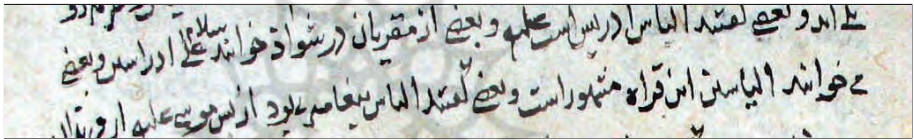 بلے اند و بعضے گفتند الیاس ادریس است علیہ و بعضے از مقریان در شواذ خوانند سلام علی ادراسین و بعضے
مے خوانند الیاسین این قراءہ مشہور است و بعضے گفتند الیاس پیغامبرے بود از پس موسے علیہ